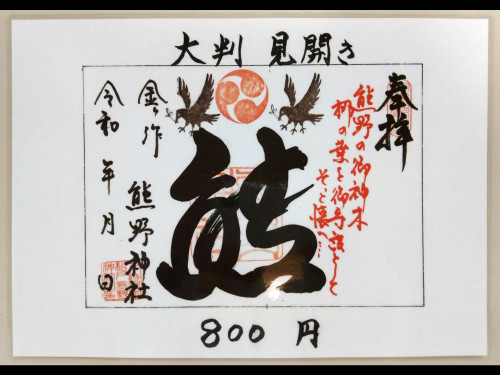 大判 見開き
奉拝
熊野の御神木
梛の葉を御守護として
そっと懐へ…
熊
金ヶ作
熊野神社
令和 年 月 日
800 円